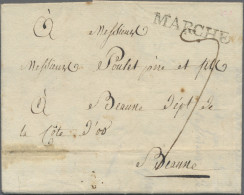 MARCHE
à Messieurs
Messieurs Poulet père et fils
à Beaune Dépt de
la Côte d'or
Beaune